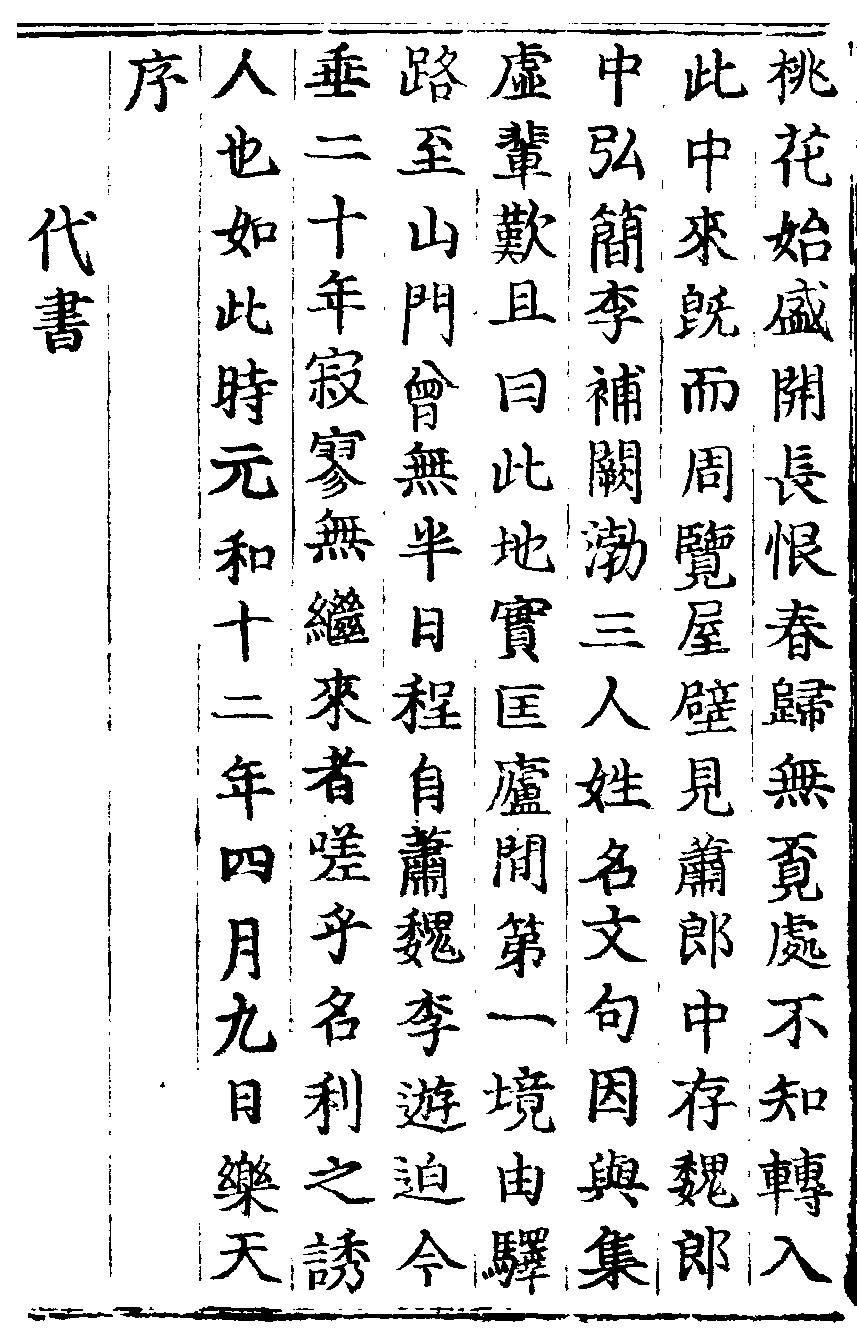 桃花始盛開長恨春歸無覔處不知轉入
此中來旣而周覽屋壁見蕭郎中存魏郎
中弘簡李補闕渤三人姓名文句因與集
虛輩歎且曰此地實匡廬間第一境由驛
路至山門曾無半日程自蕭魏李遊迨今
垂二十年寂寥無繼來者嗟乎名利之誘
人也如此時元和十二年四月九日樂天
序
代書